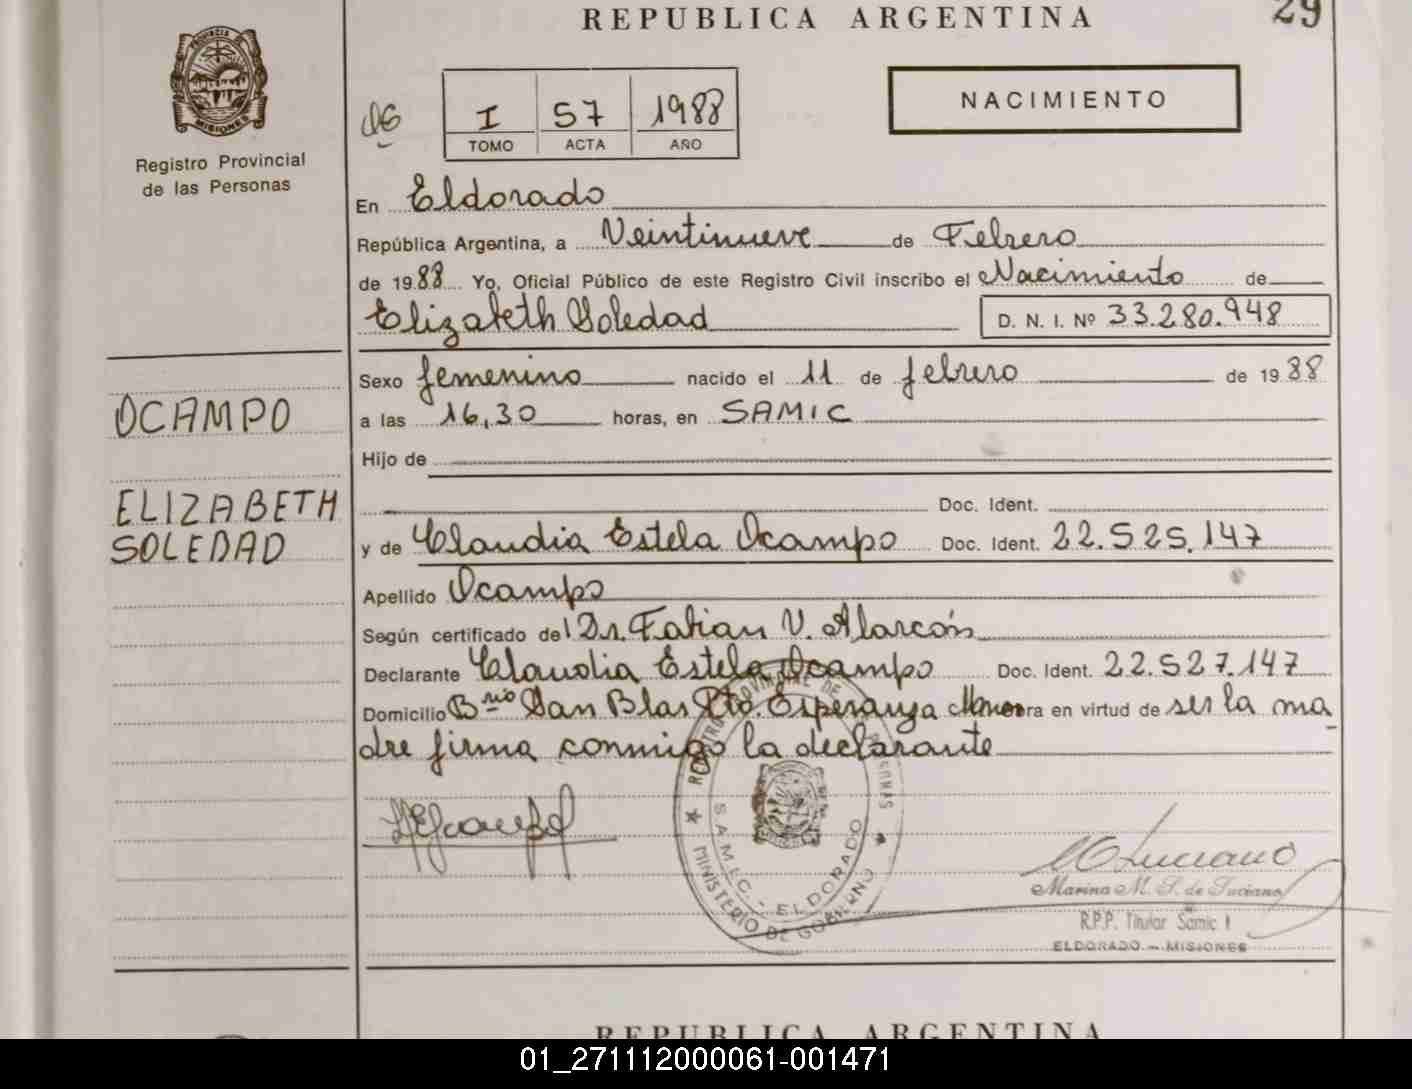 REPUBLICA ARGENTINA
29
PROVINCIA DE
MISIONES
Registro Provincial
de las Personas
I 57 1988
TOMO ACTA AÑO
NACIMIENTO
En Eldorado
República Argentina, a Veintinueve de Febrero
de 1988 Yo, Oficial Público de este Registro Civil inscribo el Nacimiento de
Elizabeth Soledad D. N. I. Nº 33.280.948
Sexo femenino nacido el 11 de febrero de 1988
a las 16,30 horas, en SAMIC
Hijo de
Doc. Ident.
y de Claudia Estela Ocampo Doc. Ident. 22.525.147
Apellido Ocampo
Según certificado del Dr. Fabian V. Alarcón
Declarante Claudia Estela Ocampo Doc. Ident. 22.527.147
Domicilio Brio San Blas Pto. Esperanza Mnes obra en virtud de ser la ma
dre firma conmigo la declarante
OCAMPO
ELIZABETH
SOLEDAD
REGISTRO PROVINCIAL DE LAS PERSONAS
S.A.M.I.C. - ELDORADO
MINISTERIO DE GOBIERNO
Luciano
Marina M. S. de Luciano
R.P.P. Titular Samic I
ELDORADO - MISIONES
REPUBLICA ARGENTINA
01_271112000061-001471